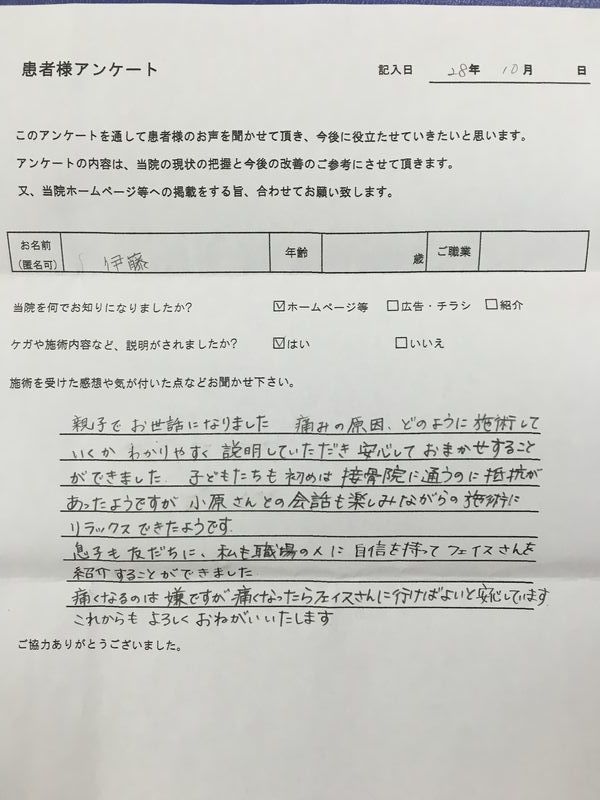 患者様アンケート
記入日 28年 10月 日
このアンケートを通して患者様のお声を聞かせて頂き、今後に役立たせていきたいと思います。
アンケートの内容は、当院の現状の把握と今後の改善のご参考にさせて頂きます。
又、当院ホームページ等への掲載をする旨、合わせてお願い致します。
お名前 (匿名可) 伊藤 年齢 歳 ご職業
当院を何でお知りになりましたか? ☑ホームページ等 □広告・チラシ □紹介
ケガや施術内容など、説明がされましたか? ☑はい □いいえ
施術を受けた感想や気が付いた点などお聞かせ下さい。
親子でお世話になりました 痛みの原因、どのように施術して
いくか わかりやすく 説明していただき 安心して おまかせすること
ができました 子どもたちも 初めは 接骨院に通うのに抵抗が
あったようですが 小原さんとの会話も楽しみながらの施術に
リラックスできたようです
息子も友だちに、私も職場の人に 自信を持ってフェイスさんを
紹介することができました
痛くなるのは嫌ですが痛くなったらフェイスさんに行けばよいと安心しています
これからも よろしく おねがいいたします
ご協力ありがとうございました。